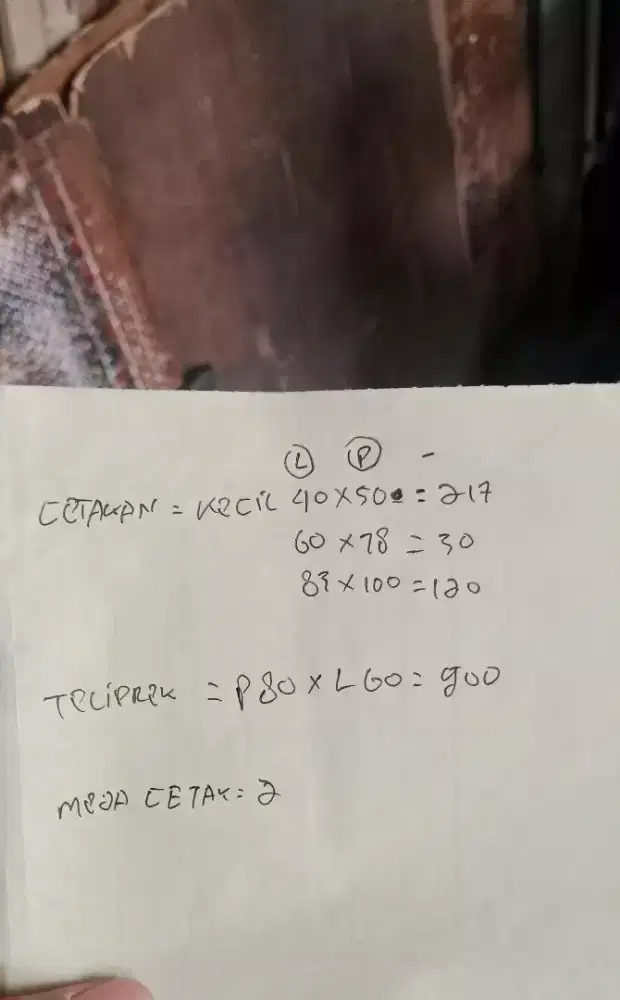 L P -
CETAKAN = KECIL 40 X 50 = 217
60 X 78 = 30
83 X 100 = 120
TRLIPREK = P80 X L60 = 900
MEJA CETAK: 2